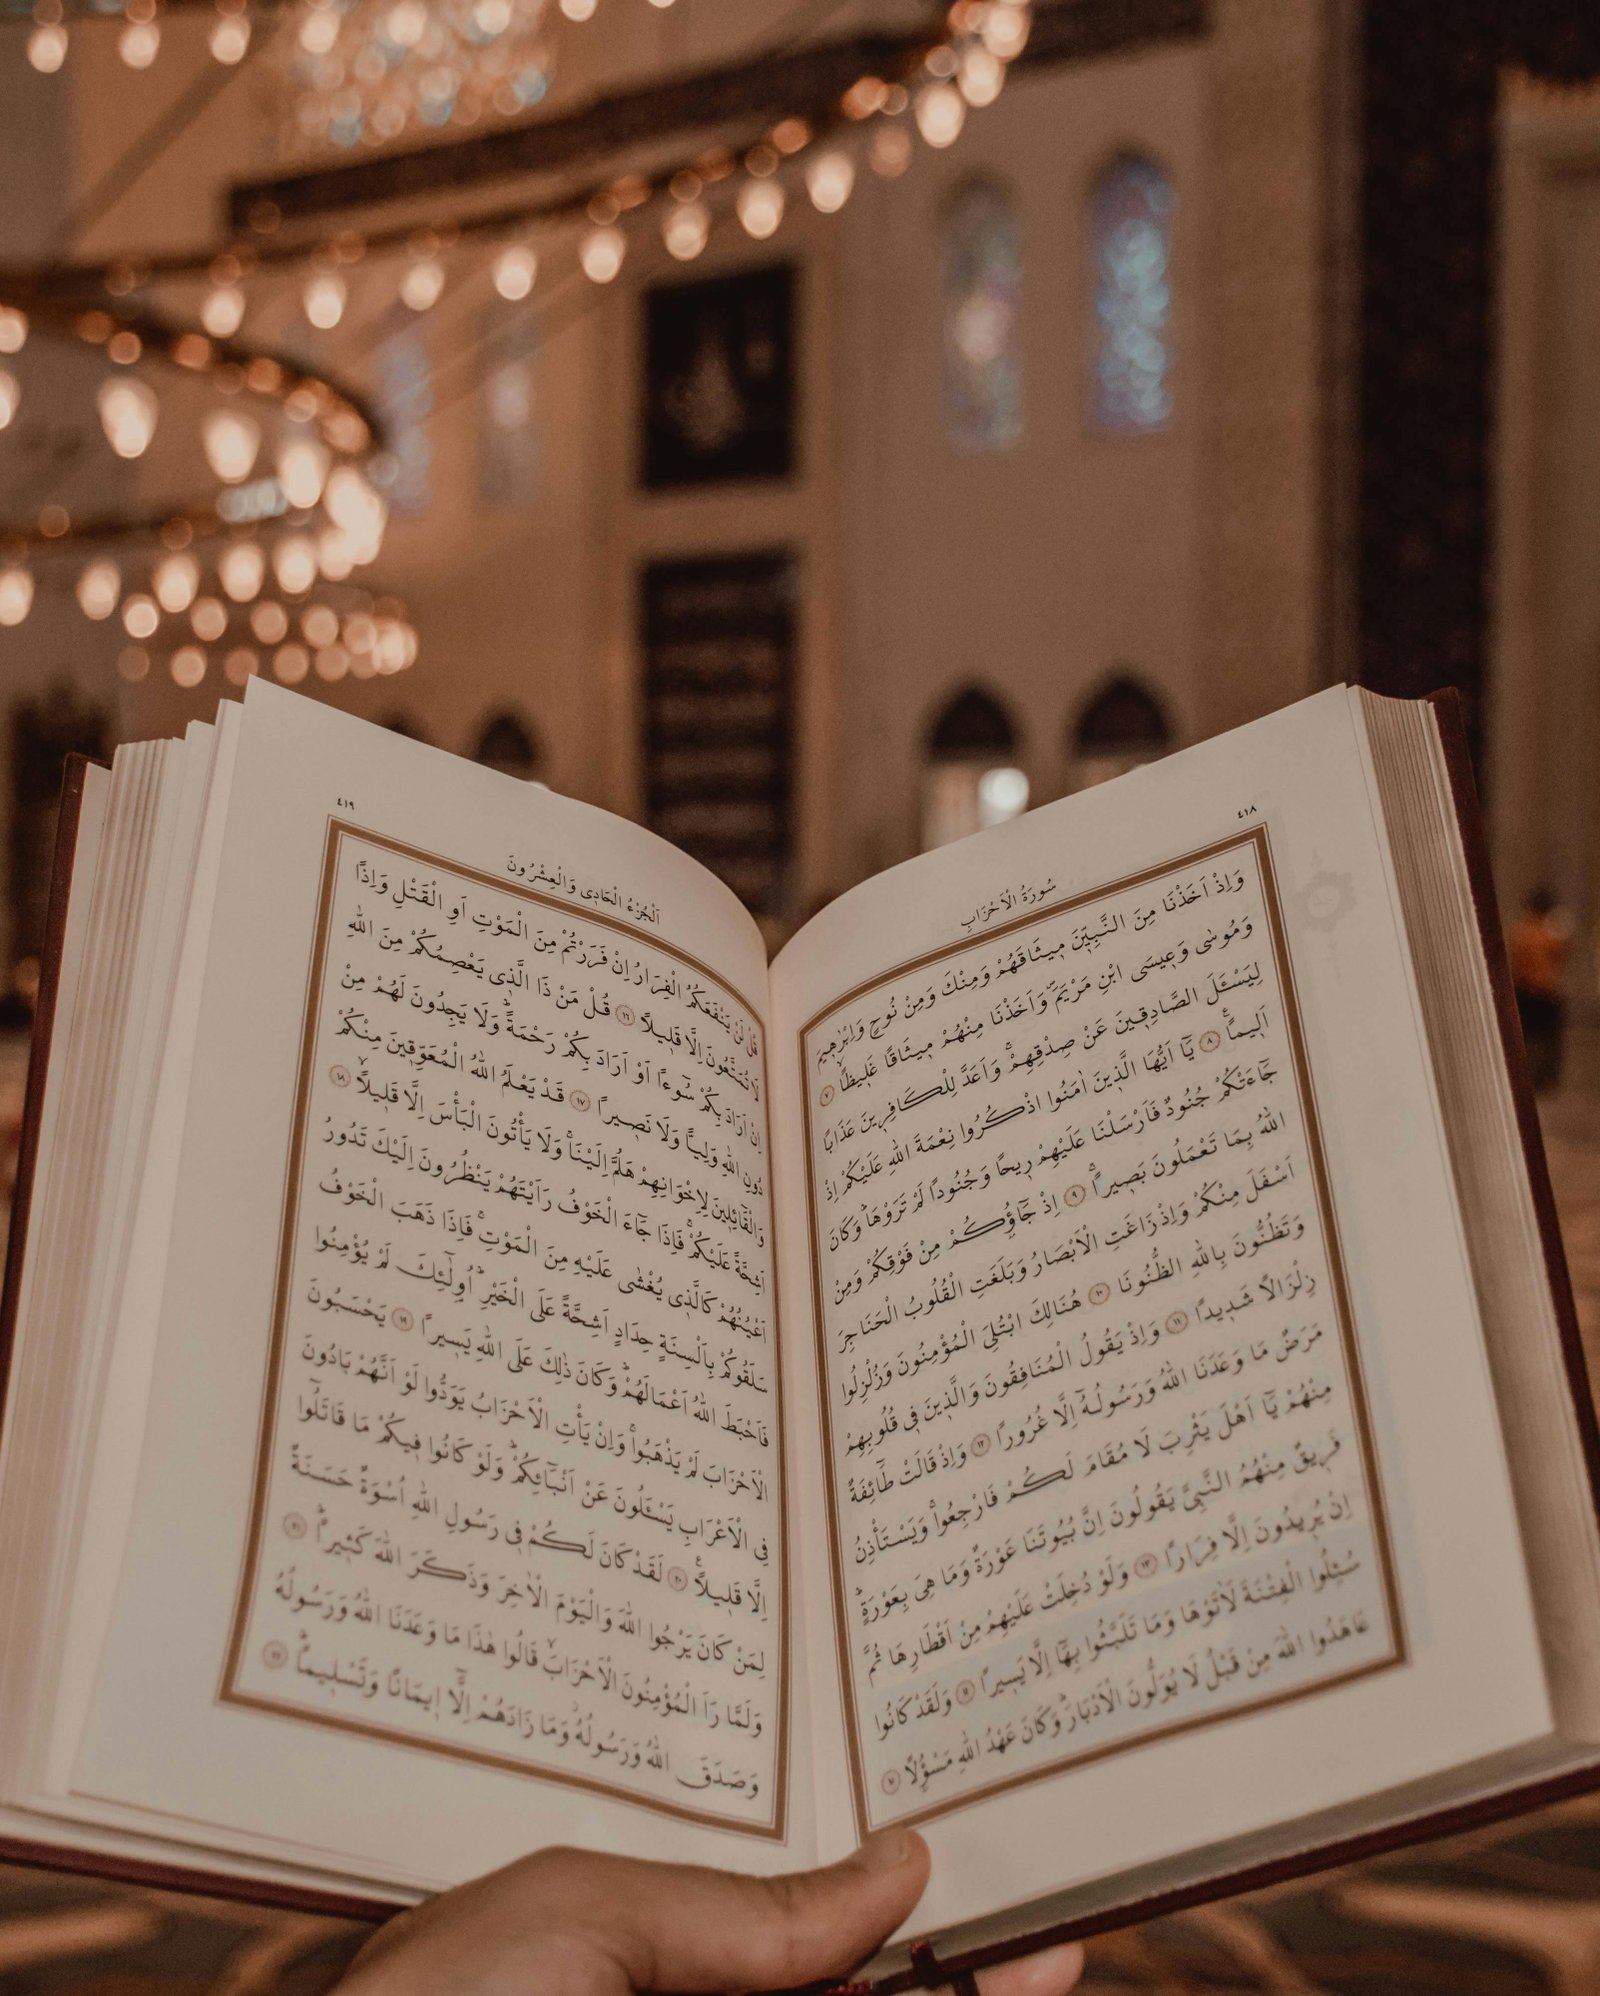 ٤١٨
سُورَةُ الْاَحْزَابِ
وَاِذْ اَخَذْنَا مِنَ النَّبِيّٖنَ مٖيثَاقَهُمْ وَمِنْكَ وَمِنْ نُوحٍ وَاِبْرٰهٖيمَ
وَمُوسٰى وَعٖيسَى ابْنِ مَرْيَمَۖ وَاَخَذْنَا مِنْهُمْ مٖيثَاقًا غَلٖيظًاۙ ﴿٧﴾
لِيَسْـَٔلَ الصَّادِقٖينَ عَنْ صِدْقِهِمْۚ وَاَعَدَّ لِلْكَافِرٖينَ عَذَابًا
اَلٖيمًاࣖ ﴿٨﴾ يَٓا اَيُّهَا الَّذٖينَ اٰمَنُوا اذْكُرُوا نِعْمَةَ اللّٰهِ عَلَيْكُمْ اِذْ
جَٓاءَتْكُمْ جُنُودٌ فَاَرْسَلْنَا عَلَيْهِمْ رٖيحًا وَجُنُودًا لَمْ تَرَوْهَاؕ وَكَانَ
اللّٰهُ بِمَا تَعْمَلُونَ بَصٖيرًاۚ ﴿٩﴾ اِذْ جَٓاؤُكُمْ مِنْ فَوْقِكُمْ وَمِنْ
اَسْفَلَ مِنْكُمْ وَاِذْ زَاغَتِ الْاَبْصَارُ وَبَلَغَتِ الْقُلُوبُ الْحَنَاجِرَ
وَتَظُنُّونَ بِاللّٰهِ الظُّنُونَا ﴿١٠﴾ هُنَالِكَ ابْتُلِىَ الْمُؤْمِنُونَ وَزُلْزِلُوا
زِلْزَالًا شَدٖيدًا ﴿١١﴾ وَاِذْ يَقُولُ الْمُنَافِقُونَ وَالَّذٖينَ فٖى قُلُوبِهِمْ
مَرَضٌ مَا وَعَدَنَا اللّٰهُ وَرَسُولُهُٓ اِلَّا غُرُورًا ﴿١٢﴾ وَاِذْ قَالَتْ طَٓائِفَةٌ
مِنْهُمْ يَٓا اَهْلَ يَثْرِبَ لَا مُقَامَ لَكُمْ فَارْجِعُواۚ وَيَسْتَأْذِنُ
فَرٖيقٌ مِنْهُمُ النَّبِىَّ يَقُولُونَ اِنَّ بُيُوتَنَا عَوْرَةٌ وَمَا هِىَ بِعَوْرَةٍۚ
اِنْ يُرٖيدُونَ اِلَّا فِرَارًا ﴿١٣﴾ وَلَوْ دُخِلَتْ عَلَيْهِمْ مِنْ اَقْطَارِهَا ثُمَّ
سُئِلُوا الْفِتْنَةَ لَاٰتَوْهَا وَمَا تَلَبَّثُوا بِهَٓا اِلَّا يَسٖيرًا ﴿١٤﴾ وَلَقَدْ كَانُوا
عَاهَدُوا اللّٰهَ مِنْ قَبْلُ لَا يُوَلُّونَ الْاَدْبَارَؕ وَكَانَ عَهْدُ اللّٰهِ مَسْؤُلًا ﴿١٥﴾
٤١٩
اَلْجُزْءُ الْحَادٖى وَالْعِشْرُونَ
قُلْ لَنْ يَنْفَعَكُمُ الْفِرَارُ اِنْ فَرَرْتُمْ مِنَ الْمَوْتِ اَوِ الْقَتْلِ وَاِذًا
لَا تُمَتَّعُونَ اِلَّا قَلٖيلًا ﴿١٦﴾ قُلْ مَنْ ذَا الَّذٖى يَعْصِمُكُمْ مِنَ اللّٰهِ
اِنْ اَرَادَ بِكُمْ سُٓوءًا اَوْ اَرَادَ بِكُمْ رَحْمَةًؕ وَلَا يَجِدُونَ لَهُمْ مِنْ
دُونِ اللّٰهِ وَلِيًّا وَلَا نَصٖيرًا ﴿١٧﴾ قَدْ يَعْلَمُ اللّٰهُ الْمُعَوِّقٖينَ مِنْكُمْ
وَالْقَٓائِلٖينَ لِاِخْوَانِهِمْ هَلُمَّ اِلَيْنَاۚ وَلَا يَأْتُونَ الْبَأْسَ اِلَّا قَلٖيلًاۙ ﴿١٨﴾
اَشِحَّةً عَلَيْكُمْۚ فَاِذَا جَٓاءَ الْخَوْفُ رَاَيْتَهُمْ يَنْظُرُونَ اِلَيْكَ تَدُورُ
اَعْيُنُهُمْ كَالَّذٖى يُغْشٰى عَلَيْهِ مِنَ الْمَوْتِۚ فَاِذَا ذَهَبَ الْخَوْفُ
سَلَقُوكُمْ بِاَلْسِنَةٍ حِدَادٍ اَشِحَّةً عَلَى الْخَيْرِؕ اُو۬لٰٓئِكَ لَمْ يُؤْمِنُوا
فَاَحْبَطَ اللّٰهُ اَعْمَالَهُمْؕ وَكَانَ ذٰلِكَ عَلَى اللّٰهِ يَسٖيرًا ﴿١٩﴾ يَحْسَبُونَ
الْاَحْزَابَ لَمْ يَذْهَبُواۚ وَاِنْ يَأْتِ الْاَحْزَابُ يَوَدُّوا لَوْ اَنَّهُمْ بَادُونَ
فِى الْاَعْرَابِ يَسْـَٔلُونَ عَنْ اَنْبَٓائِكُمْؕ وَلَوْ كَانُوا فٖيكُمْ مَا قَاتَلُٓوا
اِلَّا قَلٖيلًاࣖ ﴿٢٠﴾ لَقَدْ كَانَ لَكُمْ فٖى رَسُولِ اللّٰهِ اُسْوَةٌ حَسَنَةٌ
لِمَنْ كَانَ يَرْجُوا اللّٰهَ وَالْيَوْمَ الْاٰخِرَ وَذَكَرَ اللّٰهَ كَثٖيرًاؕ ﴿٢١﴾
وَلَمَّا رَاَ الْمُؤْمِنُونَ الْاَحْزَابَۙ قَالُوا هٰذَا مَا وَعَدَنَا اللّٰهُ وَرَسُولُهُ
وَصَدَقَ اللّٰهُ وَرَسُولُهُؗ وَمَا زَادَهُمْ اِلَّٓا اٖيمَانًا وَتَسْلٖيمًاؕ ﴿٢٢﴾